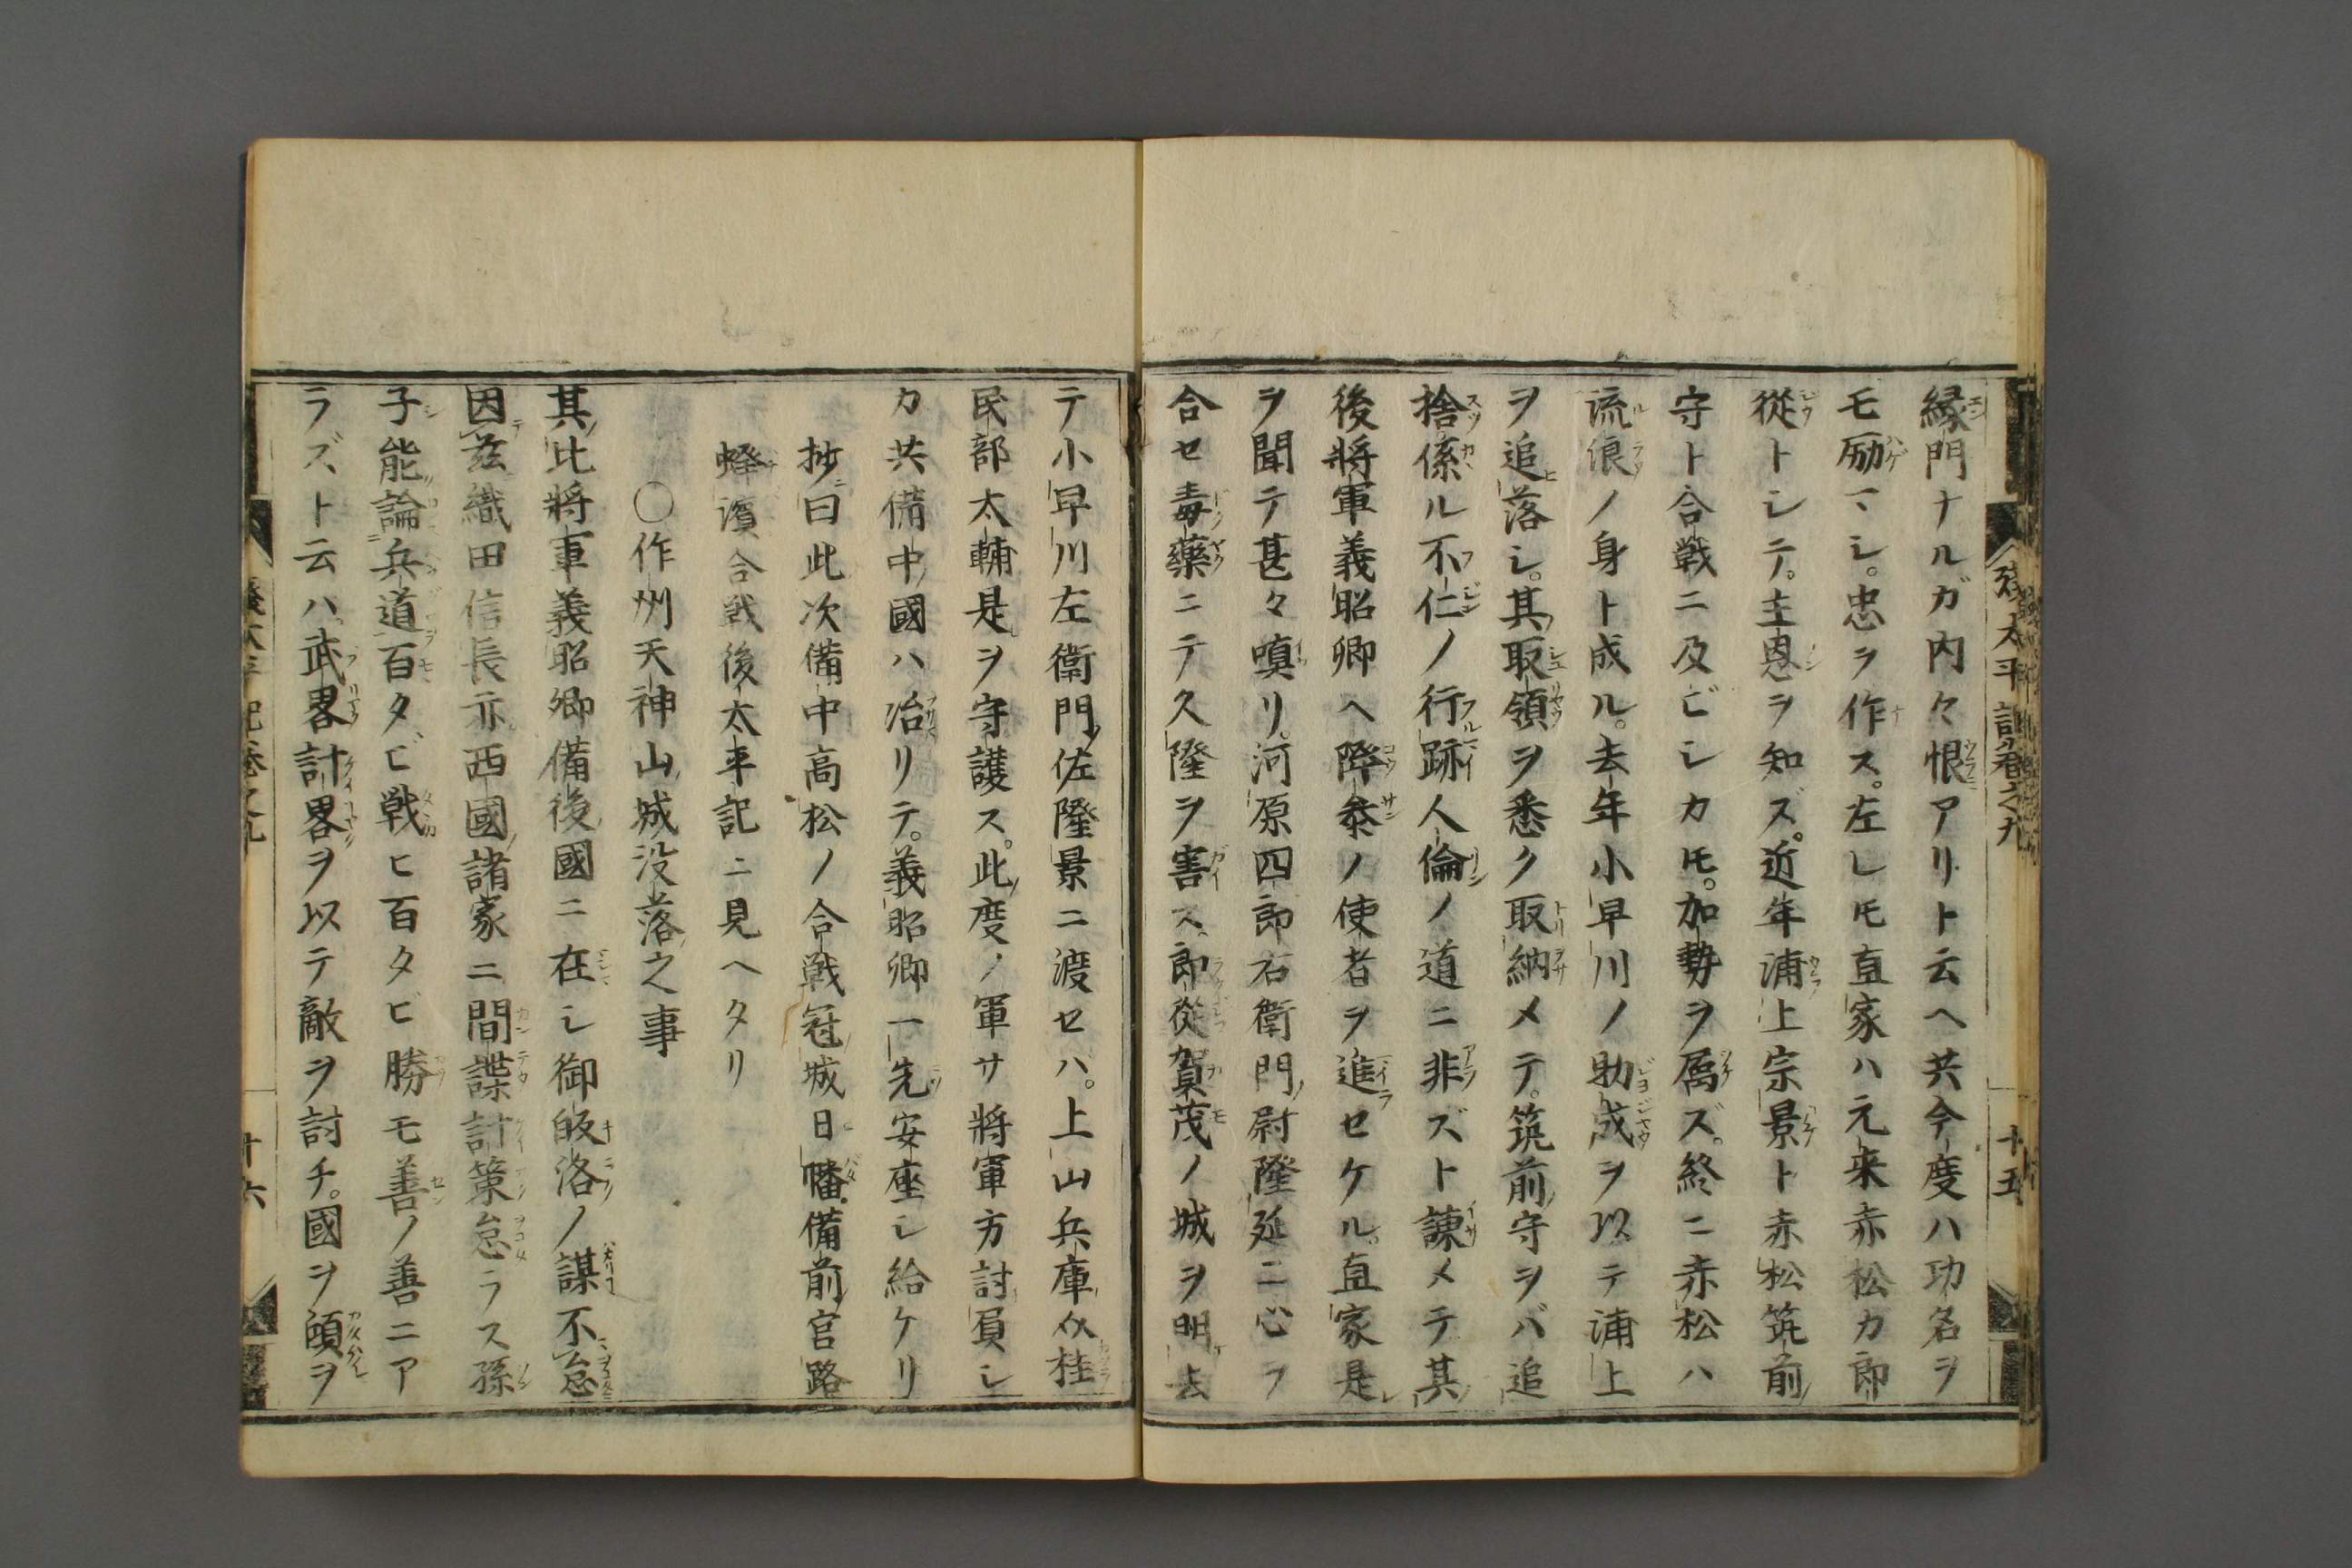 縁門ナルガ内々恨アリト云ヘ共今度ハ功名ヲ
モ励マシ。忠ヲ作ス。左レ𪜈直家ハ元来赤松カ郎
從トシテ。主恩ヲ知ズ。近年浦上宗景ト赤松筑前
守ト合戦ニ及ビシカ𪜈。加勢ヲ属ズ。終ニ赤松ハ
流浪ノ身ト成ル。去年小早川ノ助成ヲ以テ浦上
ヲ追落シ。其取領ヲ悉ク取納メテ。筑前守ヲバ追
捨係ル不仁ノ行跡人倫ノ道ニ非ズト諫メテ其
後將軍義昭卿ヘ降叅ノ使者ヲ進セケル。直家是
ヲ聞テ甚々嗔リ。河原四郎右衛門尉隆延ニ心ヲ
合セ毒藥ニテ久隆ヲ害ス。郎從賀茂ノ城ヲ明去
後太平記巻之九
十五
テ小早川左衛門佐隆景ニ渡セハ。上山兵庫介桂
民部太輔是ヲ守護ス。此度ノ軍サ將軍方討負シ
カ共備中國ハ治リテ。義昭卿一先安座シ給ケリ
抄曰此次備中高松ノ合戦冠城日幡備前宮路
蜂濱合戦後太平記ニ見ヘタリ
○作州天神山城没落之事
其比將軍義昭卿備後國ニ在シ御皈洛ノ謀不怠
因茲織田信長亦西國諸家ニ間諜計策怠ラス孫
子能論兵道百タビ戦ヒ百タビ勝モ善ノ善ニア
ラズト云ハ。武畧計畧ヲ以テ敵ヲ討チ。國ヲ傾ヲ
後太平記巻之九
十六